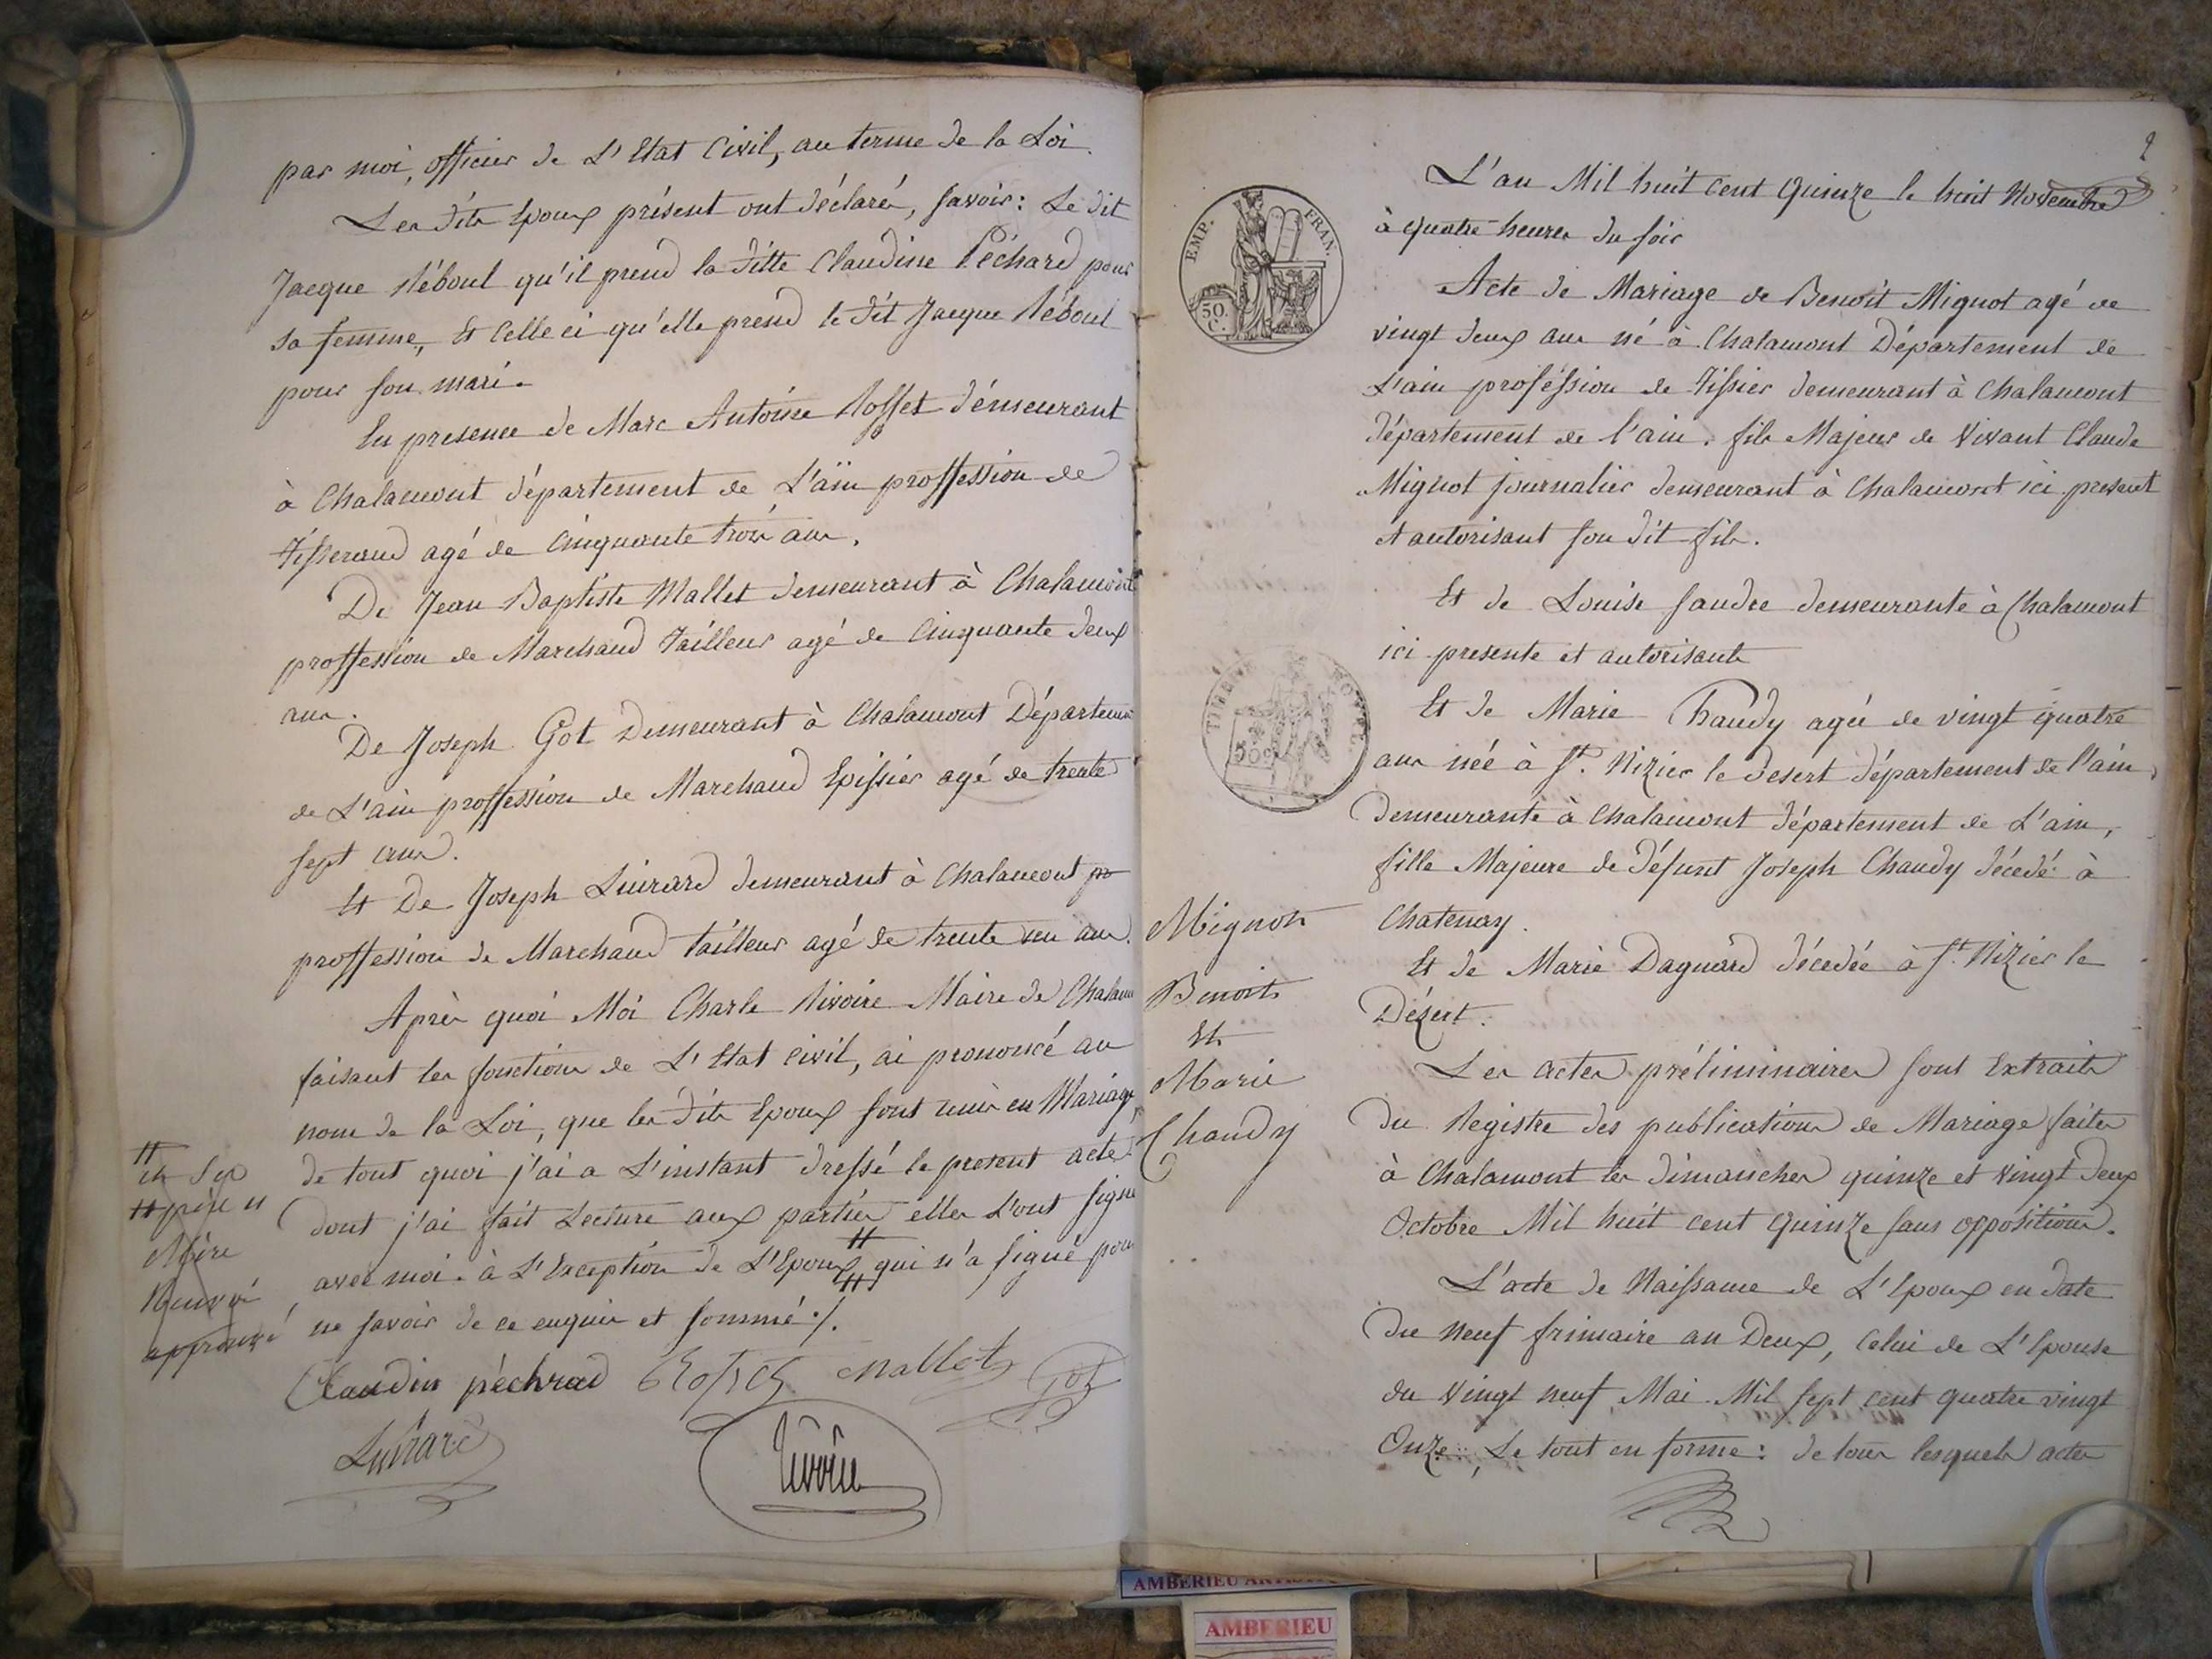 par moi, officier de L'Etat Civil, au terme de la Loi.
Les dits Epoux présent ont déclaré, savoir: Le dit
Jacque Réboul qu'il prend la ditte Claudine Péchard pour
sa femme, Et Celle ci qu'elle prend le dit Jacque Réboul
pour son mari.
En presence de Marc Antoine Rosset démeurant
à Chalamont département de L'ain proffession de
Tisserand agé de Cinquante trois ans,
De Jean Baptiste Mallet demeurant à Chalamont
proffession de Marchand Tailleur agé de Cinquante deux
ans.
De Joseph Got Demeurant à Chalamont Départem
de L'ain proffession de Marchand Epissier agé de trente
sept ans.
Et De Joseph Luirard demeurant à Chalamont pr
proffession de Marchand tailleur agé de trente un ans.
Après quoi Moi Charle Rivoire Maire de Chalam
faisant les fonctions de L'Etat civil, ai prononcé au
nom de la Loi, que les dits Epoux sont unis en Mariage,
de tout quoi j'ai a L'instant dressé le present acte
dont j'ai fait Lecture aux parties elles L'ont signé
avec moi. à L'Exception de L'Epoux qui n'a signé pour
ne savoir de ce enquis et sommé ./.
père
Mère
Renvoi
approuvé
Claudin péchrad Rosset Mallet Got
Luirard
Rivoire
2
EMP. FRAN.
50. C.
L'an Mil huit cent Quinze le huit Novembre
à quatre heures du soir
Acte de Mariage de Benoit Mignot agé de
vingt deux ans né à Chalamont Département de
L'ain proféssion de Tissier demeurant à Chalamont
département de l'ain. fils Majeur de Vivant Claude
Mignot journalier demeurant à Chalamont ici present
et autorisant son dit fils.
Et de Louise Jandre demeurante à Chalamont
ici presente et autorisante
Et de Marie Chaudy agée de vingt quatre
ans née à St. Nizier le desert département de l'ain,
demeurante à Chalamont département de L'ain,
fille Majeure de défunt Joseph Chaudy décedé à
Chatenay.
Et de Marie Daguard décedée à St. Nizier le
Dézert.
Les actes préliminaires sont Extraits
du Registre des publications de Mariage faites
à Chalamont les dimanches quinze et vingt deux
Octobre Mil huit cent Quinze sans oppositions.
L'acte de Naissance de L'Epoux en date
du neuf frimaire an Deux, Celui de L'Epouse
du vingt neuf Mai Mil sept cent quatre vingt
Onze, Le tout en forme: de tous lesquels actes
Mignot
Benoit
Et
Marie
Chaudy
AMBERIEU